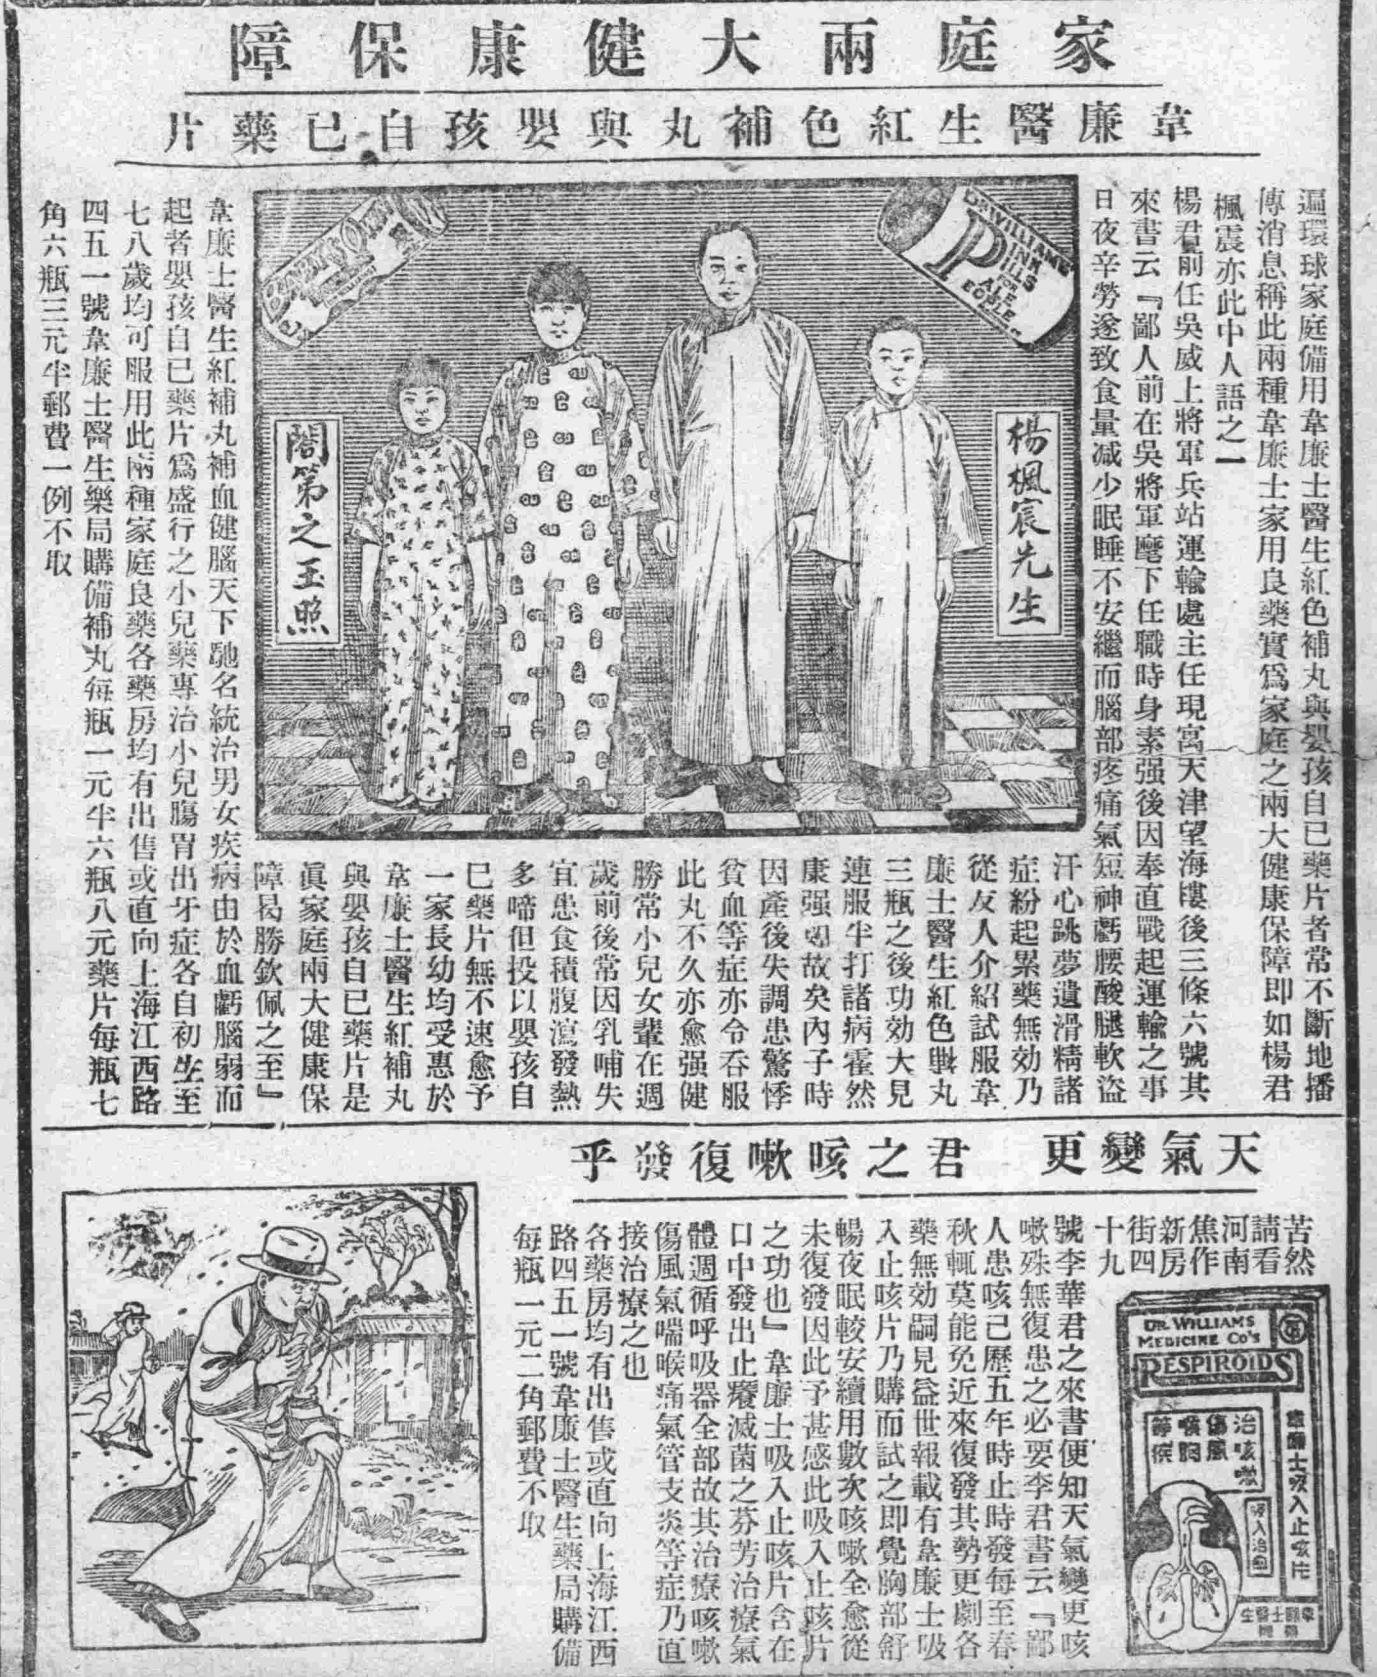 家庭兩大健康保障
韋廉醫生紅色補丸與嬰孩自己藥片
遍環球家庭備用韋廉士醫生紅色補丸與嬰孩自己藥片者常不斷地播
傳消息稱此兩種韋廉士家用良藥實爲家庭之兩大健康保障即如楊君
楓震亦此中人語之一
楊君前任吳威上將軍兵站運輸處主任現寓天津望海樓後三條六號其
來書云『鄙人前在吳將軍麾下任職時身素强後因奉直戰起運輸之事
日夜辛勞遂致食量减少眠睡不安繼而腦部疼痛氣短神虧腰酸腿軟盜
汗心跳夢遺滑精諸
症紛起累藥無効乃
從友人介紹試服韋
廉士醫生紅色補丸
三瓶之後功効大見
連服半打諸病霍然
康强如故矣內子時
因產後失調患驚悸
貧血等症亦令吞服
此丸不久亦愈强健
勝常小兒女輩在週
歲前後常因乳哺失
宜患食積腹瀉發熱
多啼但投以嬰孩自
己藥片無不速愈予
一家長幼均受惠於
韋廉士醫生紅補丸
與嬰孩自己藥片是
眞家庭兩大健康保
障曷勝欽佩之至』
韋廉士醫生紅補丸補血健腦天下馳名統治男女疾病由於血虧腦弱而
起者嬰孩自己藥片爲盛行之小兒藥專治小兒腸胃出牙症各自初生至
七八歲均可服用此兩種家庭良藥各藥房均有出售或直向上海江西路
四五一號韋廉士醫生藥局購備補丸每瓶一元半六瓶八元藥片每瓶七
角六瓶三元半郵費一例不取
楊楓宸先生
閤第之玉照
DR WILLIAMS
PINK
PILLS
FOR
PALE
PEOPLE
BABY'S OWN
天氣變更 君之咳嗽復發乎
苦然
請看
河南
焦作
新房
街四
十九
號李華君之來書便知天氣變更咳
嗽殊無復患之必要李君書云『鄙
人患咳已歷五年時止時發每至春
秋輒莫能免近來復發其勢更劇各
藥無効嗣見益世報載有韋廉士吸
入止咳片乃購而試之即覺胸部舒
暢夜眠較安續用數次咳嗽全愈從
未復發因此予甚感此吸入止咳片
之功也』韋廉士吸入止咳片含在
口中發出止癢滅菌之芬芳治療氣
體週循呼吸器全部故其治療咳嗽
傷風氣喘喉痛氣管支炎等症乃直
接治療之也
各藥房均有出售或直向上海江西
路四五一號韋廉士醫生藥局購備
每瓶一元二角郵費不取
DR. WILLIAMS
MEDICINE CO'S
RESPIROIDS
韋廉士吸入止咳片
治咳嗽
傷風
喉胸
等疾
吸入治法
韋廉士醫生
藥局